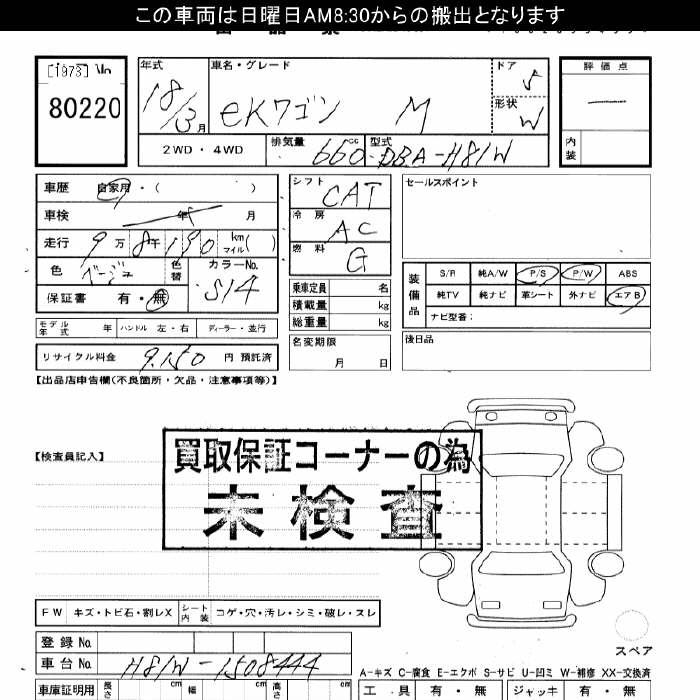 この車両は日曜日AM8:30からの搬出となります
[1973]
80220
年式 車名・グレード ドア 評価点
18/3月 eKワゴン M 5
形状 W
2WD・4WD 排気量 660cc 型式 DBA-H81W
内装
車歴 自家用・( )
シフト CAT
セールスポイント
車検 年 月
冷房 AC
走行 9万8千190 km マイル( )
燃料 G
色 ベージュ 色替 カラーNo. S14
装備品 S/R 純A/W P/S P/W ABS
保証書 有・無
乗車定員 名
純TV 純ナビ 革シート 外ナビ エアB
積載量 kg
ナビ型番:
モデル年式 年 ハンドル 左・右 ディーラー・並行
総重量 kg
後日品
リサイクル料金 9,150 円 預託済
名変期限 月 日
【出品店申告欄(不良箇所・欠品・注意事項等)】
【検査員記入】
買取保証コーナーの為
未検査
FW キズ・トビ石・割レX シート内装 コゲ・穴・汚レ・シミ・破レ・スレ
スペア
登録No
車台No H81W-1508444
A-キズ C-腐食 E-エクボ S-サビ U-凹ミ W-補修 XX-交換済
車庫証明用 長さ cm 幅 cm 高さ cm
工具 有・無 ジャッキ 有・無